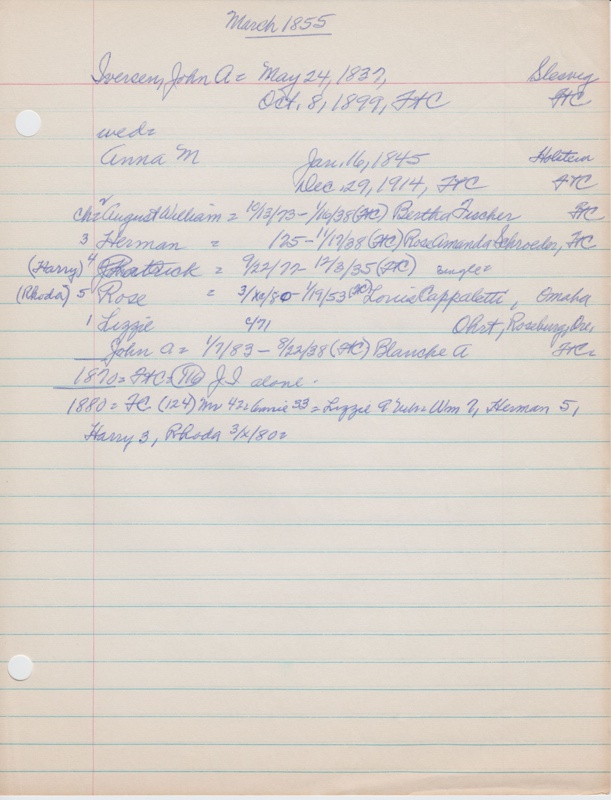 March 1855
Iversen, John A = May 24, 1837, Slesvig
Oct. 8, 1899, FHC FHC
wed=
Anna M Jan. 16, 1845 Holstein
Dec 29, 1914, FHC FHC
ch= 2 August William = 10/13/73 - 1/16/38 (FHC) Bertha Fischer FHC
3 Herman = 1/25 - 11/17/38 (FHC) Rose Amanda Schroeder, FHC
(Harry) 4 = 9/22/77 - 12/3/35 (FHC) single=
(Rhoda) 5 Rose = 3/xx/80 - 1/19/53 (FHC) Louis Cappaletti, Omaha
1 Lizzie c/71 Ohrt, Roseburg, Ore.
John A = 1/7/83 - 8/22/38 (FHC) Blanche A FHC=
1870 = FHC= J I alone.
1880 = FC (124) Mr 42 = Annie 33 = Lizzie 9 Wm 7, Herman 5,
Harry 3, Rhoda 3/x/80=